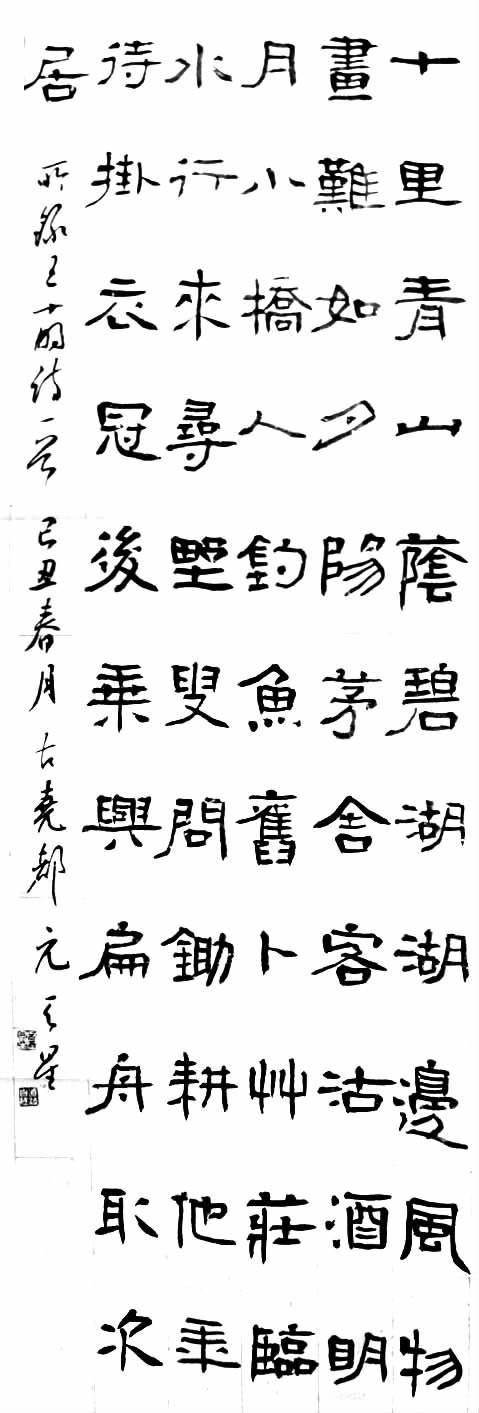 十里青山蔭碧湖湖邊風物
畫難如夕陽茅舍客沽酒明
月小橋人釣魚舊卜艸莊臨
水行來尋野叟問鋤耕他年
待掛衣冠後乘興扁舟取次
居
所錄王十朋詩一首 己丑春月古堯都 元天星